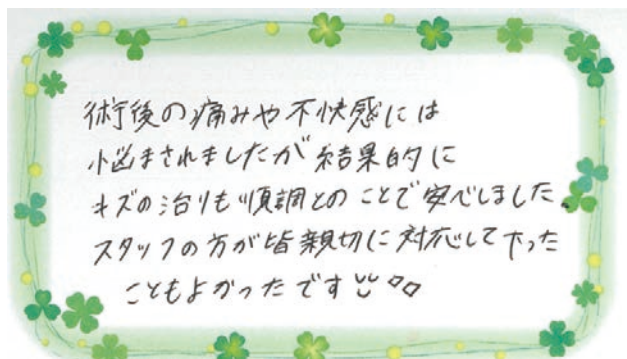 術後の痛みや不快感には
悩まされましたが結果的に
キズの治りも順調とのことで安心しました。
スタッフの方が皆親切に対応して下った
こともよかったです